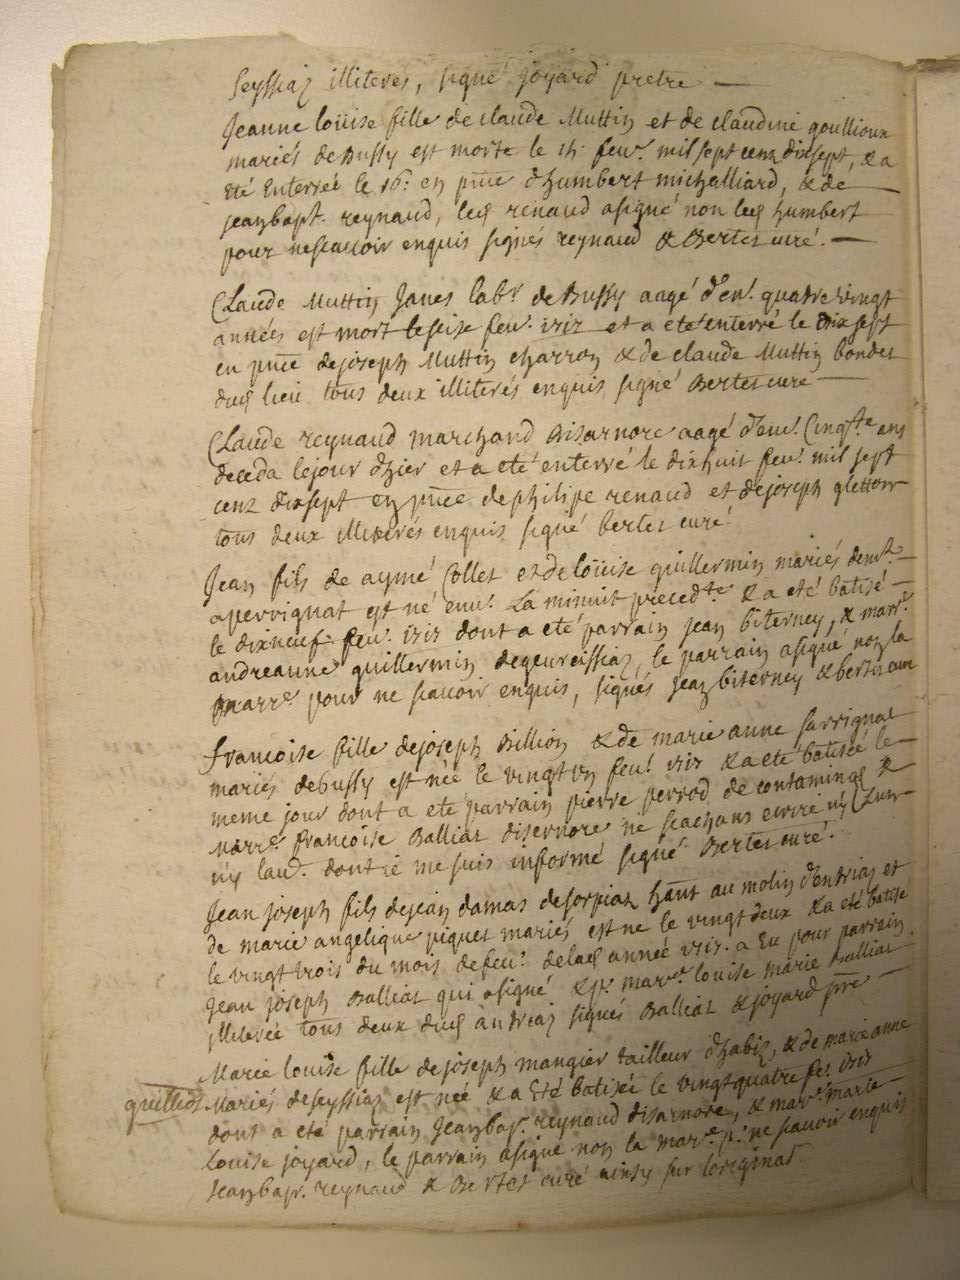 Seyssiaz illiteres, signé joyard pretre
Jeanne loüise fille de claude Muttin et de claudine goullioux
mariés de Bussy est morte le 14: feu. mil sept cenz dixsept, & a
eté Enterrée le 16: en pnce d'humbert michalliard, & de
jeanbapt. reynaud, led renaud a signé non led humbert
pour ne scauoir enquis signés reynaud & Bertet curé.
Claude Muttin Janes labr de Bussy aagé d'en. quatre vingt
années est mort le seise feu. 1717 et a eté enterré le dix sept
en pnce de joseph Muttin charron & de claude Muttin bondet
dud lieu tous deux illiterés enquis signé Bertet curé
Claude reynaud marchand disarnore aagé d'enu. Cinqte ans
deceda le jour d'hier et a eté enterré le dixhuit feu. mil sept
cenz dixsept en pnce de philipe renaud et de joseph glettour
tous deux illiterés enquis signé bertet curé.
Jean fils de aymé Collet et de loüise guillermin mariés demt
a perrignat est né enu. La minuit precedte & a eté batisé
le dixneuf feu. 1717 dont a eté parrain jean biterney, & marr.
andreanne guillermin de geureissiaz, le parrain a signé non la
marre pour ne scauoir enquis, signés jean biterney & bertet curé
francoise fille de joseph Billion & de marie anne sarrignat
mariés de bussy est née le vingt un feu. 1717 & a eté batisée le
meme jour dont a eté parrain pierre perrod de contamine &
marre francoise Balliat disernore ne scachans ecrire ny l'un
ny lau. dont ie me suis informé signé Bertet curé.
Jean joseph fils de jean damas de sorpiaz hant au molin d'andriaz et
de marie angelique piquet mariés est ne le vingt deux & a eté batisé
le vingt trois du mois de feu. de lad année 1717. a Eu pour parrain
Jean joseph Balliat qui a signé & p. marre louise marie Balliat
illiterée tous deux dud andriaz signés Balliat & joyard pre
Marie louise fille de joseph mangier tailleur d'habis, & de marie anne
guilliot Mariés de seyssiaz est née & a Eté batisée le vingt quatre fe. 1717
dont a eté parrain Jeanbap. reynaud disarnore, & mar. marie
Louise joyard, le parrain a signé non la mare p. ne scauoir enquis
Jeanbap. reynaud & Bertet curé ainsy sur loriginal.